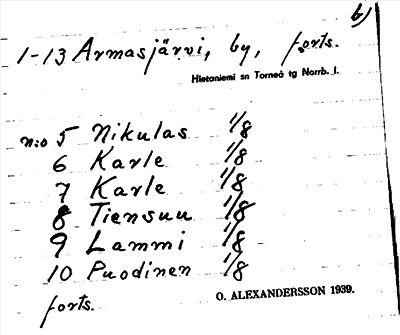 b)
1-13 Armasjärvi, by, forts.
Hietaniemi sn Torneå tg Norrb. l.
n:o 5 Nikulas 1/8
6 Karle 1/8
7 Karle 1/8
8 Tiensuu 1/8
9 Lammi 1/8
10 Puodinen 1/8
forts.
O. ALEXANDERSSON 1939.